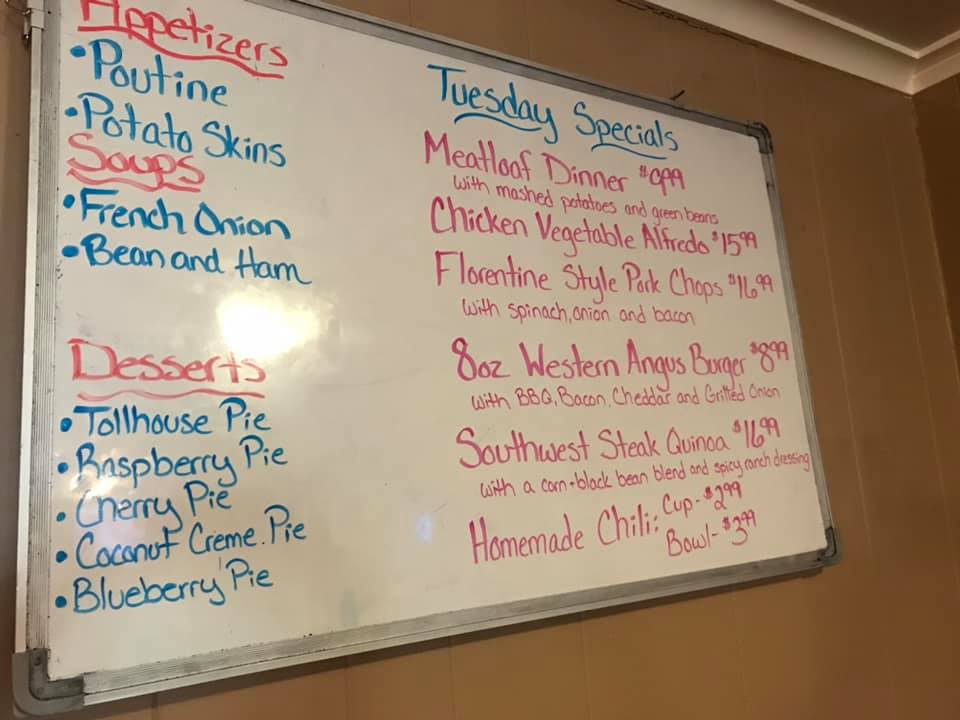 Appetizers
• Poutine
• Potato Skins
Soups
• French Onion
• Bean and Ham
Desserts
• Tollhouse Pie
• Raspberry Pie
• Cherry Pie
• Coconut Creme Pie
• Blueberry Pie
Tuesday Specials
Meatloaf Dinner $9.99
with mashed potatoes and green beans
Chicken Vegetable Alfredo $15.99
Florentine Style Pork Chops $16.99
with spinach, onion and bacon
8oz Western Angus Burger $8.99
with BBQ, Bacon, Cheddar and Grilled Onion
Southwest Steak Quinoa $16.99
with a corn + black bean blend and spicy ranch dressing
Homemade Chili: Cup - $2.99
Bowl - $3.99